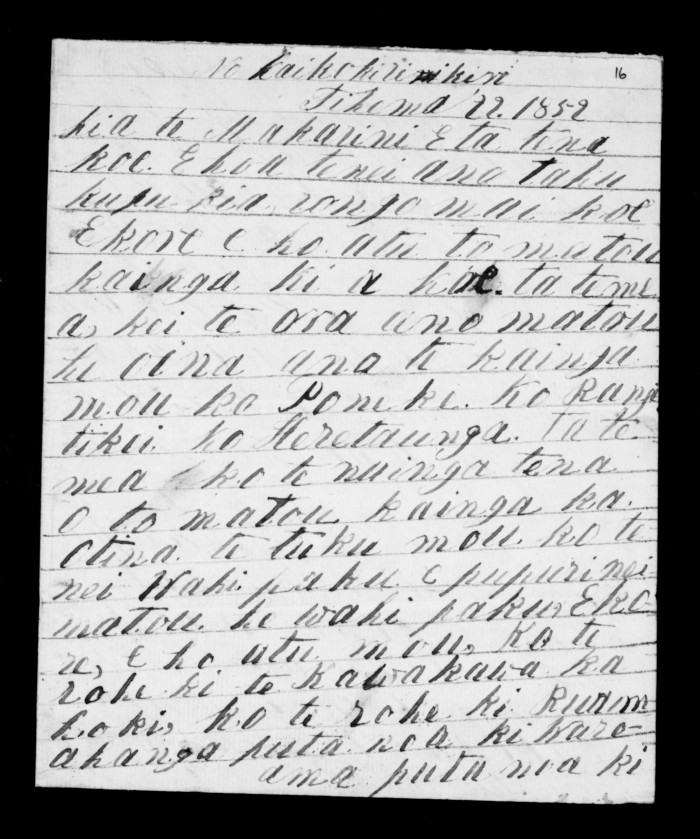 No Kaikokirikiri 16
Tihema 22. 1852
kia te Makarini E ta tena
koe. E hoa tenei ano taku
kupu kia rongo mai koe
Ekore e ho atu to matou
kainga ki a koe. ta te me
a, kei te ora ano matou
he oina ano te kainga
mou ko Poneke. Ko Rangi
tikii ko Heretaunga. ta te
mea ko te nuinga tena
o to matou kainga ka
otina te tuku mou. ko te
nei Wahi paku e pupuri nei
matou he wahi paku, Eko-
re, e ho utu mou, Ko te
rohe ki te Kawakawa ka
hoki, ko te rohe ki Ruam
ahanga puta noa ki Ware-
ama puta noa ki